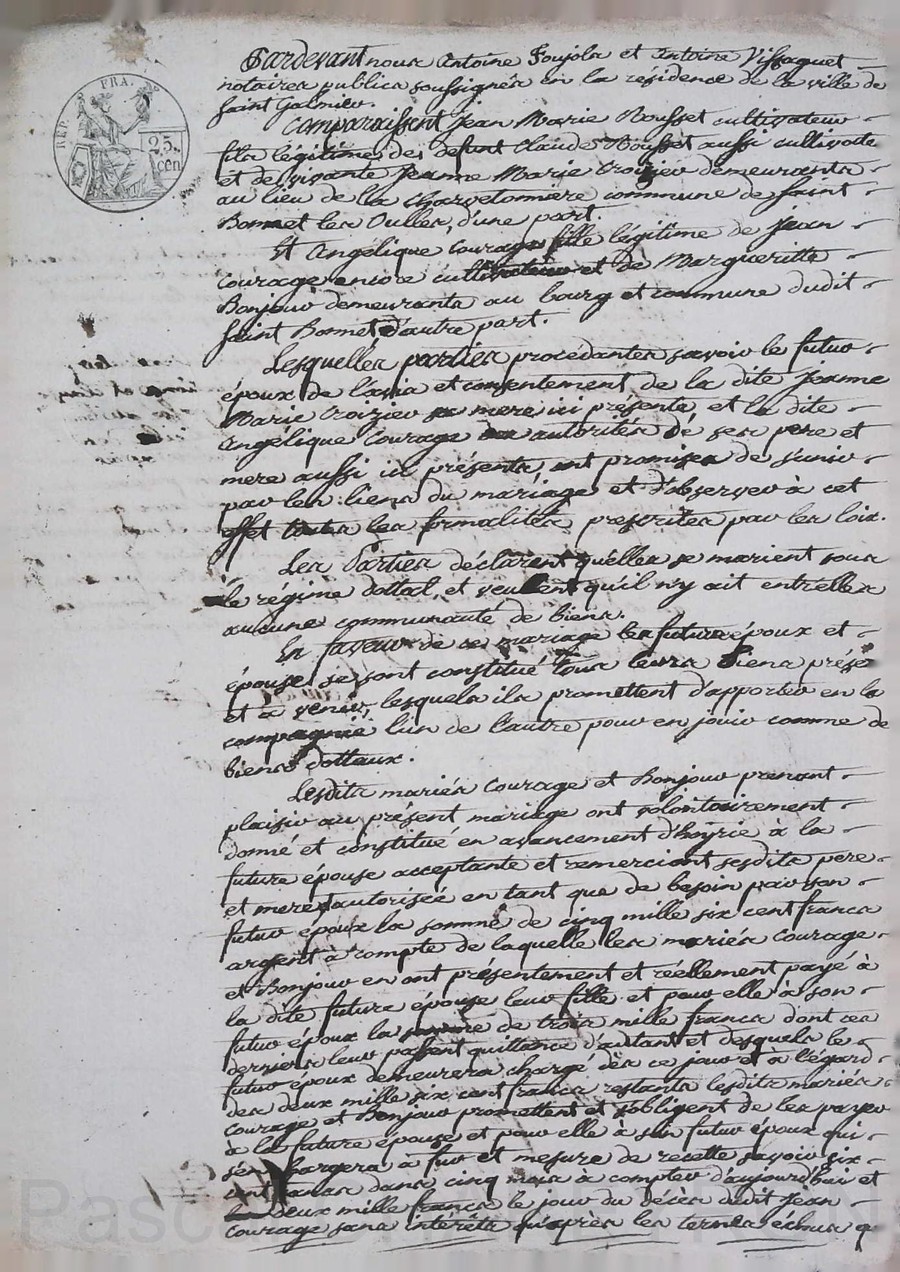 REP. FRA.
25. cen
Pardevant nous Antoine Soujola et Antoine Vissaguet
notaires publics soussignés en la residence de la ville de
Saint Galmier.
Comparaissent Jean Marie Rousset cultivateur
fils légitime de defunt Claude Rousset aussi cultivate
et de vivante Jeanne Marie Croizier demeurants
au lieu de la Charvetonnière commune de Saint
Bonnet les Oulles, d'une part.
Et Angélique Courage fille légitime de Jean
Courage encore cultivateur et de Margueritte
Bonjour demeurants au bourg et commune dudit
Saint Bonnet d'autre part.
Lesquelles parties procédantes savoir le futur
époux de l'avis et consentement de la dite Jeanne
Marie Croizier sa mere ici présente, et la dite
Angélique Courage autorités de ses pere et
mere aussi ici présents, ont promises de s'unir
par les liens du mariage et d'observer à cet
effet toutes les formalités prescrites par les loix.
Les Parties déclarent qu'elles se marient sous
le regime dottal, et veulent qu'il n'y ait entr'elles
aucune communauté de biens.
En faveur de ce mariage les future époux et
épouse se sont constitué tous leurs Biens prése
et à venir, lesquels ils promettent d'apporter en la
compagnie l'un de l'autre pour en jouir comme de
biens dottaux.
Lesdits mariés Courage et Bonjour prenant
plaisir au présent mariage ont volontairement
donné et constitué en avancement d'hoirie à la
future épouse acceptante et remerciant sesdits pere
et mere autorisée en tant que de besoin par son
futur époux la somme de cinq mille six cent francs
argent à compte de laquelle les mariés Courage
et Bonjour en ont présentement et réellement payé à
la dite future épouse leur fille et pour elle à son
futur époux la somme de trois mille francs dont ces
derniers leur passent quittance d'autant et desquels le
futur époux demeurera chargé dès ce jour et à l'égard
des deux mille six cent francs restants lesdits mariés
Courage et Bonjour promettent et s'obligent de les payer
à la future épouse et pour elle à son futur époux qui
s'en chargera à fur et mesure de recette savoir six
cent francs dans cinq mois à compter d'aujourd'hui et
les deux mille francs le jour du décès dudit Jean
Courage sans intérêts qu'après les termes échus q